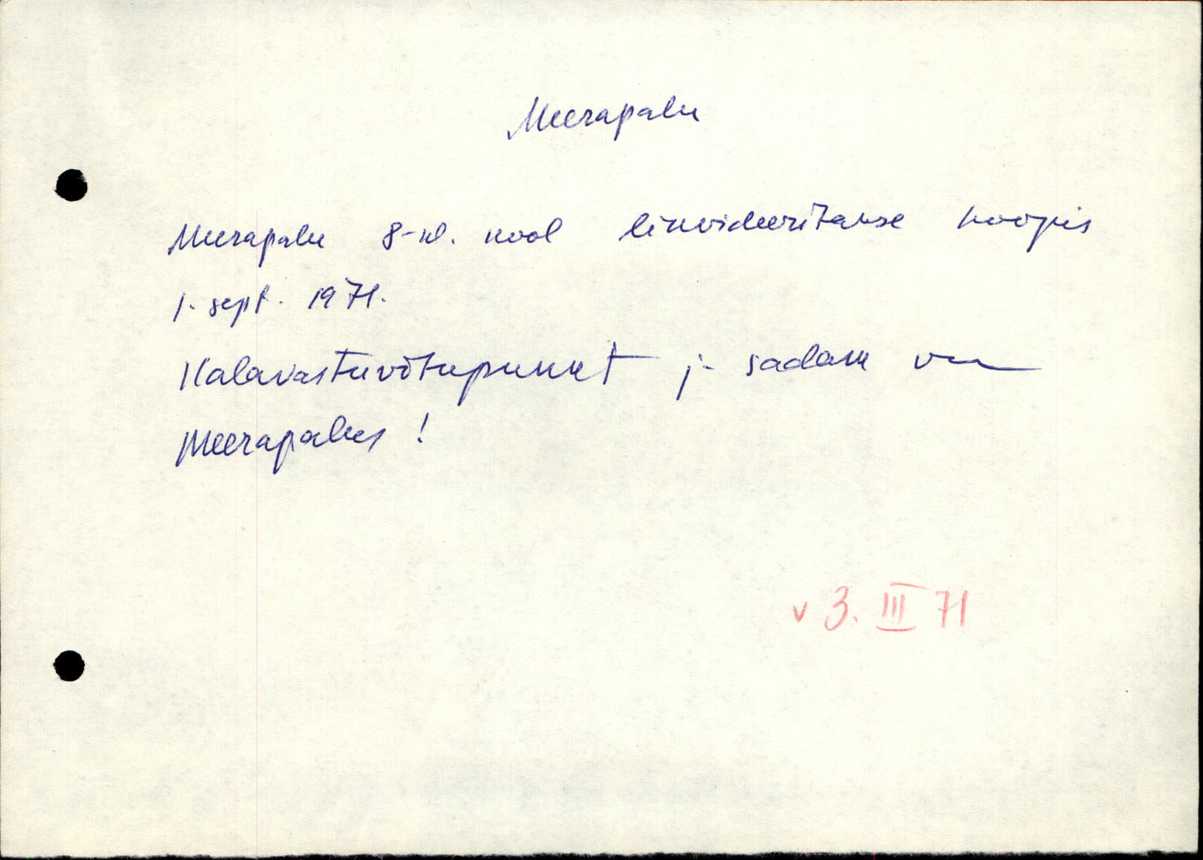 Meerapalu
Meerapalu 8-kl. kool likvideeritakse hoopis
1. sept. 1971.
Kalavastuvõtupunkt j- sadam on
Meerapalus!
v 3. III 71